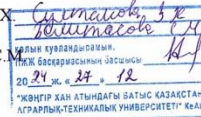 Х. Султанова З К
С.М
Қолын куәландырамын.
ПЖЖ басқармасының басшысы
20 24 ж. « 27 » 12
"ЖӘҢГІР ХАН АТЫНДАҒЫ БАТЫС ҚАЗАҚСТАН
АГРАРЛЫҚ-ТЕХНИКАЛЫҚ УНИВЕРСИТЕТІ" КеАҚ